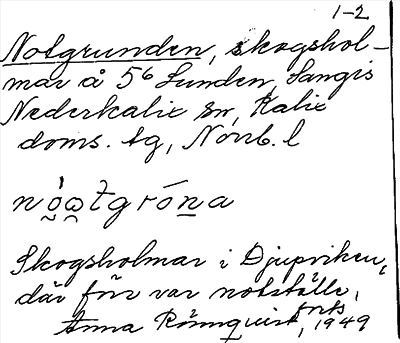 1-2
Notgrunden, skogshol-
mar å 5⁶ Lunden, Sangis
Nederkalix sn, Kalix
doms. tg, Norrb. l
Skogsholmar i Djupviken,
där förr var notställe,
Anna Rönnquist, 1949